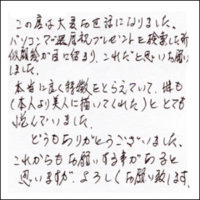 この度は大変お世話になりました。
パソコンで還暦祝プレゼントを検索した所
似顔絵が目に留まり、これだと思いお願い
しました。
本当に良く特徴をとらえていて、娘も
(本人より美人に描いてくれた)ととても
悦んでいました。
どうもありがとうございました、
これからもお願いする事があると
思いますが、よろしくお願い致します。